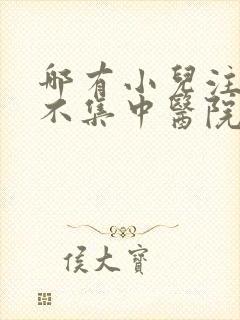 哪有小兒注
不集中醫院
侯大寶